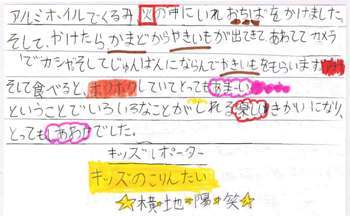 アルミホイルでくるみ火の中にいれおちばをかけました。
そして、かけたらかまどからやきいもが出てきてあわててカメラ
でカシャそしてじゅんばんにならんでやきいもをもらいます
そして食べると、ホクホクしていてとってもあまーい
ということでいろいろなことがしれる楽しきかいになり、
とってもしあわせでした。
キッズレポーター
キッズのこりんたい
☆横☆地☆陽☆笑☆